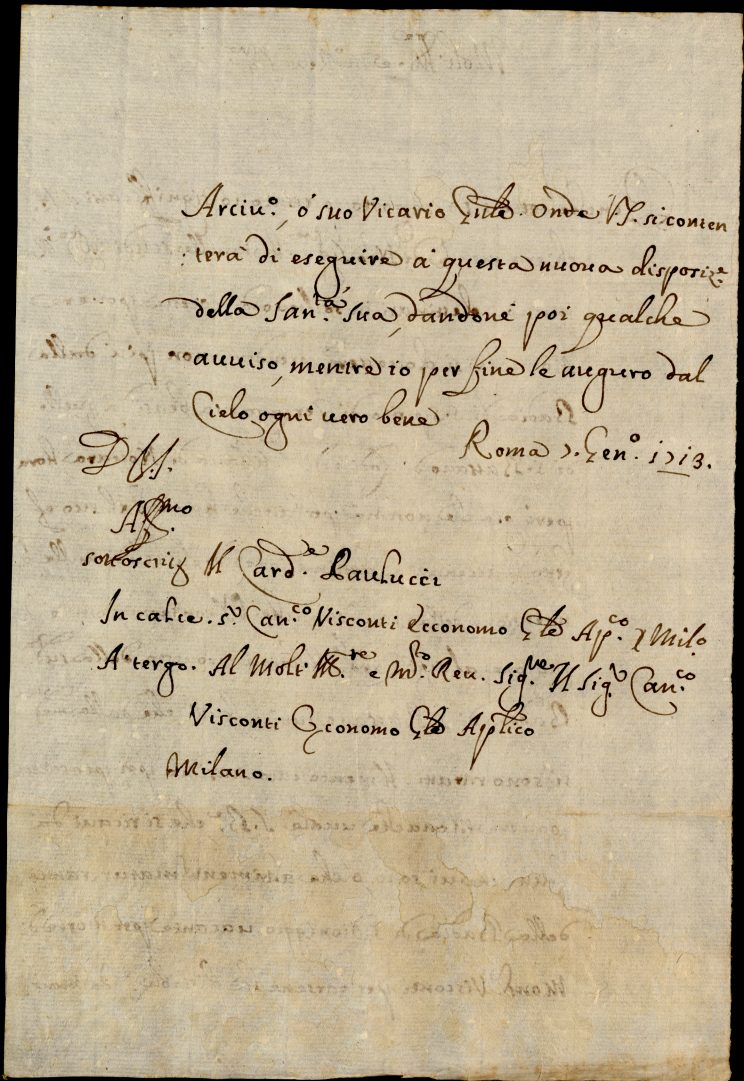 Arciu.º, ó suo Vicario Gnle. Onde V.S. si conten
terà di eseguire à questa nuova disposiz.e
della San.tà Sua, dandone poi qualche
auuiso, mentre io per fine le auguro dal
Cielo ogni uero bene
Roma 7. Gen.º 1713.
D V.S.
Aff.mo
sottoscritt Il Card.e Paulucci
In calce. S.r Can.co Visconti Economo Gnle Ap.co Milº
A' tergo. Al Molt' Ill.re e M.º Reu. Sig.re Il Sig.r Can.co
Visconti Economo Gnle Aplico
Milano.